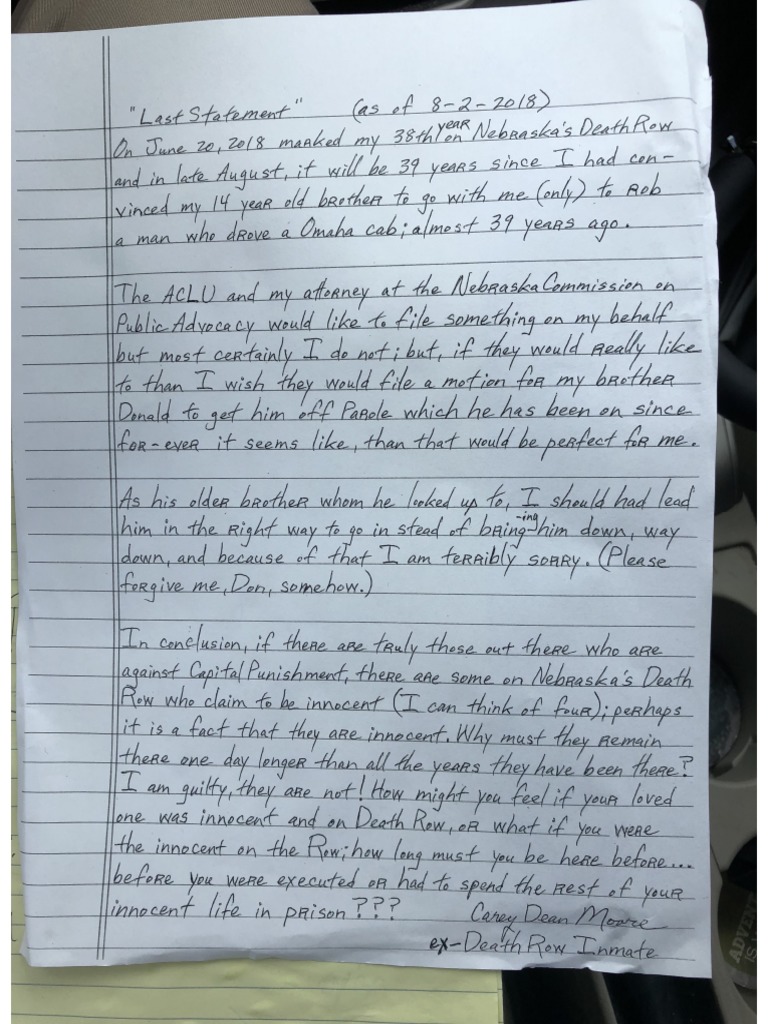 "Last Statement" (as of 8-2-2018)
On June 20, 2018 marked my 38th year on Nebraska's Death Row
and in late August, it will be 39 years since I had con-
vinced my 14 year old brother to go with me (only) to rob
a man who drove a Omaha cab; almost 39 years ago.
The ACLU and my attorney at the Nebraska Commission on
Public Advocacy would like to file something on my behalf
but most certainly I do not; but, if they would really like
to than I wish they would file a motion for my brother
Donald to get him off Parole which he has been on since
for-ever it seems like, than that would be perfect for me.
As his older brother whom he looked up to, I should had lead
him in the right way to go in stead of bring-ing him down, way
down, and because of that I am terribly sorry. (Please
forgive me, Don, somehow.)
In conclusion, if there are truly those out there who are
against Capital Punishment, there are some on Nebraska's Death
Row who claim to be innocent (I can think of four); perhaps
it is a fact that they are innocent. Why must they remain
there one day longer than all the years they have been there?
I am guilty, they are not! How might you feel if your loved
one was innocent and on Death Row, or what if you were
the innocent on the Row; how long must you be here before...
before you were executed or had to spend the rest of your
innocent life in prison???
Carey Dean Moore
ex-Death Row Inmate